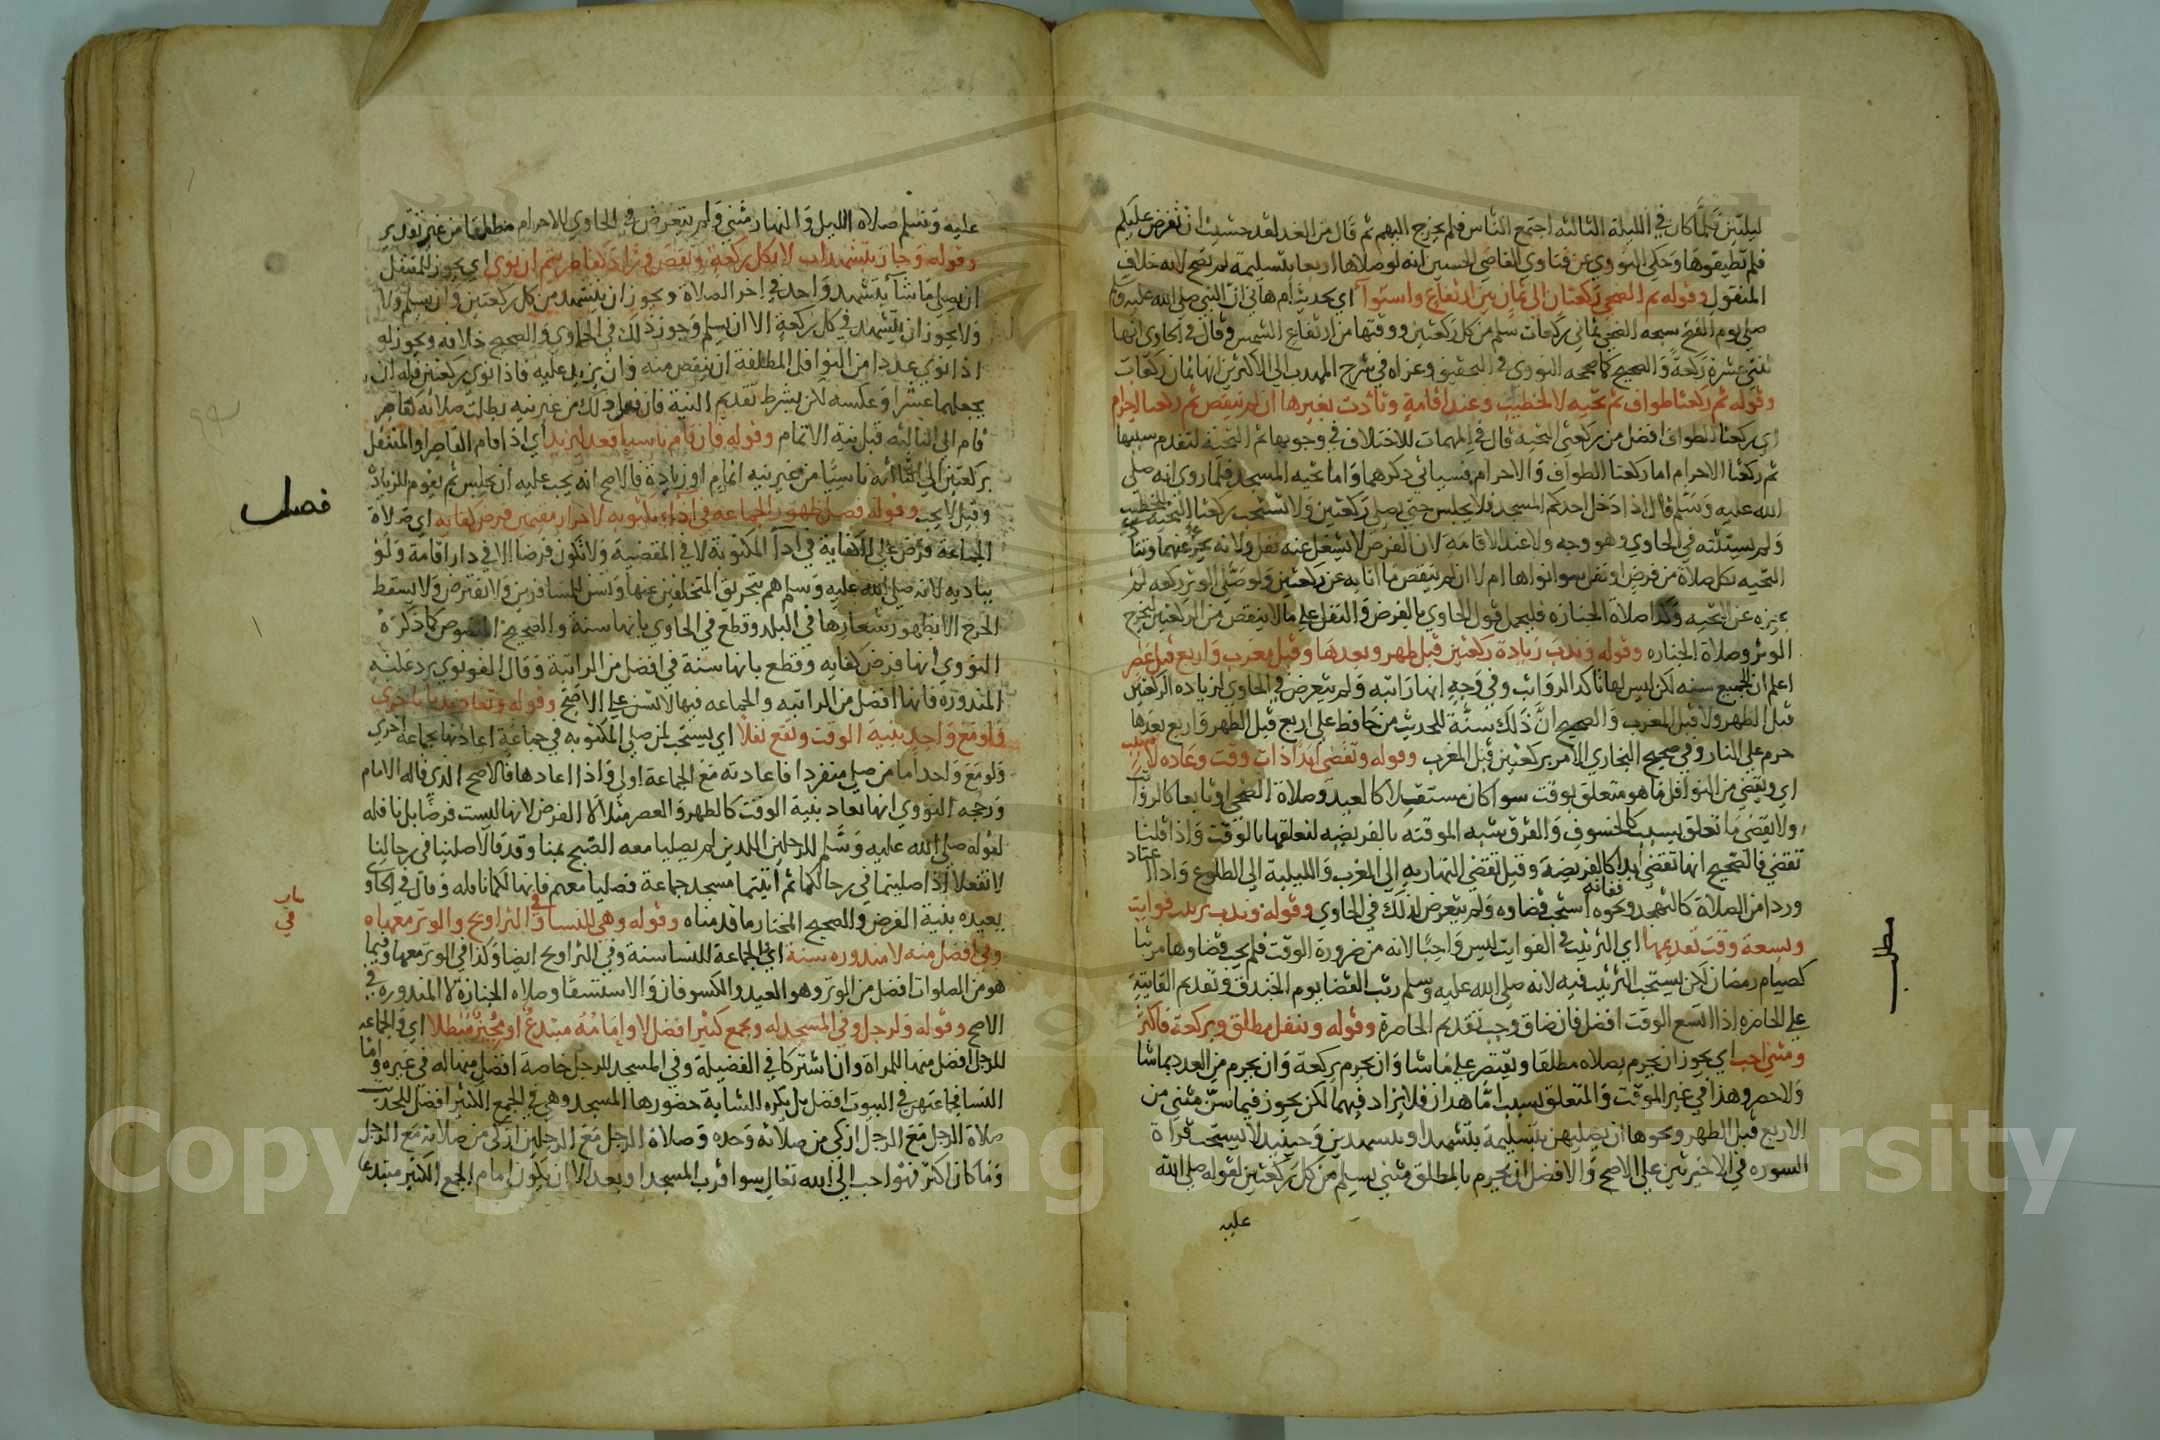 ليلتين فلما كان في الليلة الثالثة اجتمع الناس فلم يخرج اليهم ثم قال من الغد لقد خشيت ان تفرض عليكم
فلم تطيقوها وحكي النووي عن فتاوي القاضي الحسين انه لو صلاها اربعا بتسليمة لم تصح لانه خلاف
المنقول وقوله ثم الضحي ركعتان الي ثمان بين ارتفاع واستوآ اي لحديث ام هاني ان النبي صلي الله عليه وسلم
صلي يوم الفتح سبحه الضحي ثماني ركعات سلم من كل ركعتين ووقتها من ارتفاع الشمس وقال في الحاوي انها
ثنتي عشرة ركعة والصحيح كما صححه النووي في التحقيق وعزاه في شرح المهذب الي الاكثرين انها ثمان ركعات
وقوله ثم ركعتا طواف ثم تحيه لا لخطيب وعند اقامة وتأدت بغيرها ان لم تنقص ثم ركعتا احرام
اي ركعتا الطواف افضل من ركعتي التحيه قال في المهمات للاختلاف في وجوبها ثم التحية لتقدم سببها
ثم ركعتا الاحرام اما ركعتا الطواف والاحرام فسياتي ذكرهما واما تحيه المسجد فلما روي انه صلي
الله عليه وسلم قال اذا دخل احدكم المسجد فلا يجلس حتي يصلي ركعتين ولا تستحب ركعتا التحية للخطيب
ولم يستثنه في الحاوي وهو وجه ولا عند الاقامة لان الفرض لا يشغل عنه نفل ولانه يجزي عنهما وتتأدي
التحيه بكل صلاة من فرض او نفل سوا نواها ام لا ان لم تنقص ما اتا به عن ركعتين ولو صلي الوتر ركعه لم
يجزه عن التحيه وكذا صلاة الجنازه فليحمل قول الحاوي بالفرض والنفل علي مالا ينقص من الركعتين ليخرج
الوتر وصلاة الجنازه وقوله وندب زيادة ركعتين قبل ظهر وبعدها وقبل مغرب واربع قبل عصر
اعلم ان الجميع سنه لكن ليس لها تاكد الرواتب وفي وجه انها راتبه ولم يتعرض في الحاوي لزياده الركعتين
قبل الظهر ولا قبل المغرب والصحيح ان ذلك سنة للحديث من حافظ علي اربع قبل الظهر واربع بعدها
حرم علي النار وفي صحيح البخاري الامر بركعتين قبل المغرب وقوله وتقضي ابدا ذات وقت وعاده لا بسبب
اي ويقضي من النوافل ما هو متعلق بوقت سوا كان مستقبلا كالعيد وصلاة الضحي او تابعا كالرواتب
ولا يقضي ما تعلق بسبب كالخسوف والفرق شبه الموقتة بالفريضه لتعلقها بالوقت واذا قلنا
تقضي فالصحيح انها تقضي ابدا كالفريضة وقيل تقضي النهاريه الي المغرب والليلية الي الطلوع واذا اعتاد
وردا من الصلاة كالتهجد ونحوه ففاته استحب قضاوه ولم يتعرض لذلك في الحاوي وقوله وندب ترتيب فوايت
وبسعة وقت تقديمها اي الترتيب في الفوايت ليس واجبا لانه من ضرورة الوقت فلم يجب قضاوها مرتبا
كصيام رمضان لكن يستحب الترتيب فيه لانه صلي الله عليه وسلم رتب القضا يوم الخندق وتقديم الفايتة
علي الحاضره اذا اتسع الوقت افضل فان ضاق وجب تقديم الحاضرة وقوله وتنفل مطلق وبركعة فاكثر
ومثني احب اي يجوز ان يحرم بصلاه مطلقا ويقتصر علي ما شا وان يحرم بركعة وان يحرم من العدد بما شا
ولا حصر وهذا في غير الموقت والمتعلق بسبب اما هذان فلا يزاد فيهما لكن يجوز فيما سن مثني من
الاربع قبل الظهر ونحوها ان يصليهن بتسليمة بتشهد او بتشهدين وحينيذ لا يستحب قراة
السوره في الاخيرتين علي الاصح والافضل ان يحرم بالمطلق مثني يسلم من كل ركعتين لقوله صلي الله
عليه
مطلب
عليه وسلم صلاه الليل والنهار مثني ولم يتعرض في الحاوي للاحرام مطلقا من غير تقدير
وقوله وجاز بتشهدات لا بكل ركعة ونقص وزاد كقاصر ثم ان نوي اي يجوز للمتنفل
ان يصلي ما شآ بتشهد واحد في اخر الصلاة ويجوز ان يتشهد من كل ركعتين وان يسلم ولا
ولا يجوز ان يتشهد في كل ركعة الا ان يسلم وجوز ذلك في الحاوي والصحيح خلافه ويجوز له
اذا نوي عددا من النوافل المطلقة ان ينقص منه وان يزيد عليه فاذا نوي ركعتين فله ان
يجعلهما عشرا وعكسه لكن بشرط تقديم النية فان فعل ذلك من غير نيه بطلت صلاته كقاصر
قام الي الثالثه قبل نية الاتمام وقوله فان قام ناسيا قعد ليزيد اي اذا قام القاصر او المتنفل
بركعتين الي الثالثه ناسيا من غير نيه اتمام او زيادة فالاصح انه يجب عليه ان يجلس ثم يقوم للزيادة
وقيل لا يجب وقوله فصل ظهور الجماعه في اداء مكتوبه لاحرار مقيمين فرض كفايه اي صلاة
الجماعة فرض علي الكفاية في ادآ المكتوبة لا في المقضية ولا تكون فرضا الا في دار اقامة ولو
بباديه لانه صلي الله عليه وسلم هم بتحريق المتخلفين عنها وتسن للمسافرين ولا تفترض ولا يسقط
الحرج الا بظهور شعارها في البلد وقطع في الحاوي بانها سنة والصحيح المنصوص كما ذكره
النووي انها فرض كفايه وقطع بانها سنة في افضل من الراتبة وقال القونوي يرد عليه
المنذورة فانها افضل من الراتبه والجماعه فيها لا تسن علي الاصح وقوله وتعاد ندبا باخري
ولو مع واحد بنية الوقت وتقع نفلا اي يستحب لمن صلي المكتوبه في جماعة اعادتها بجماعة اخري
ولو مع واحد اما من صلي منفردا فاعادته مع الجماعة اولي واذا اعادها فالاصح الذي قاله الامام
ورجحه النووي انها تعاد بنية الوقت كالظهر والعصر مثلا لا الفرض لانها ليست فرضا بل نافله
لقوله صلي الله عليه وسلم للرجلين اللذين لم يصليا معه الصبح بمنا وقد قالا صلينا في رحالنا
لا تفعلا اذا صليتما في رحالكما ثم اتيتما مسجد جماعة فصليا معهم فانها لكما نافله وقال في الحاوي
يعيده بنية الفرض والصحيح المختار ما قدمناه وقوله وهي للنسا وفي التراويح والوتر معها
وفي افضل منه لا منذوره سنة اي الجماعة للنسا سنة وفي التراويح ايضا وكذا في الوتر معها وفيما
هو من الصلوات افضل من الوتر وهو العيد والكسوفان والاستسقا وصلاه الجنازة لا المنذوره في
الاصح وقوله ولرجل وفي المسجد له وبجمع كثير افضل لا وامامه مبتدع او يخير تعطلا اي والجماعه
للرجل افضل منها للمراة وان اشتركا في الفضيلة وفي المسجد للرجل خاصة افضل منها له في غيره واما
النسا فجماعتهن في البيوت افضل بل يكره للشابة حضورها المسجد وهي في الجمع الكثير افضل للحديث
صلاة الرجل مع الرجل ازكي من صلاته وحده وصلاة الرجل مع الرجلين ازكي من صلاته مع الرجل
وما كان اكثر فهو احب الي الله تعالي سوا قرب المسجد او بعد الا ان يكون امام الجمع الكثير مبتدعا
فصل
Copyright © King Saud University